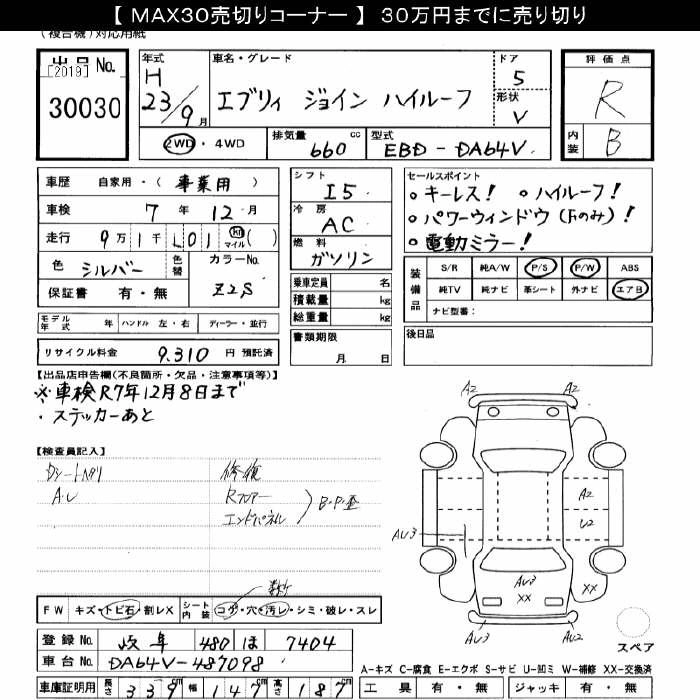 【 MAX30売切りコーナー 】 30万円までに売り切り
(複合機)対応用紙
出品 No.
[2019]
30030
年式
H
23/9月
車名・グレード
エブリィ ジョイン ハイルーフ
ドア
5
形状
V
評価点
R
内装
B
2WD・4WD
排気量 660 cc
型式 EBD-DA64V
車歴 自家用・( 事業用 )
車検 7年 12月
走行 9万1千 101 km マイル ( )
色 シルバー 色替
カラーNo. Z2S
保証書 有・無
モデル年式 年 ハンドル 左・右 ディーラー・並行
リサイクル料金 9,310 円 預託済
シフト I5
冷房 AC
燃料 ガソリン
乗車定員 名
積載量 kg
総重量 kg
書類期限
月 日
セールスポイント
。キーレス! 。ハイルーフ!
。パワーウィンドウ(Fのみ)!
。電動ミラー!
装備品
S/R 純A/W P/S P/W ABS
純TV 純ナビ 革シート 外ナビ エアB
ナビ型番:
後日品
【出品店申告欄(不良箇所・欠品・注意事項等)】
※車検R7年12月8日まで
・ステッカーあと
【検査員記入】
A・U
修復
Rフロアー
エンドパネル
B・P・歪
A2 A2
A2
U2
AU3
AU3
XX
XX
AU3 AU2
スペア
FW キズ・トビ石・割レX
シート内装 コゲ・穴・汚レ・シミ・破レ・スレ
登録 No. 岐阜 480 ほ 7404
車台 No. DA64V-487098
車庫証明用 長さ 339cm 幅 147cm 高さ 187cm
A-キズ C-腐食 E-エクボ S-サビ U-凹ミ W-補修 XX-交換済
工具 有・無 ジャッキ 有・無